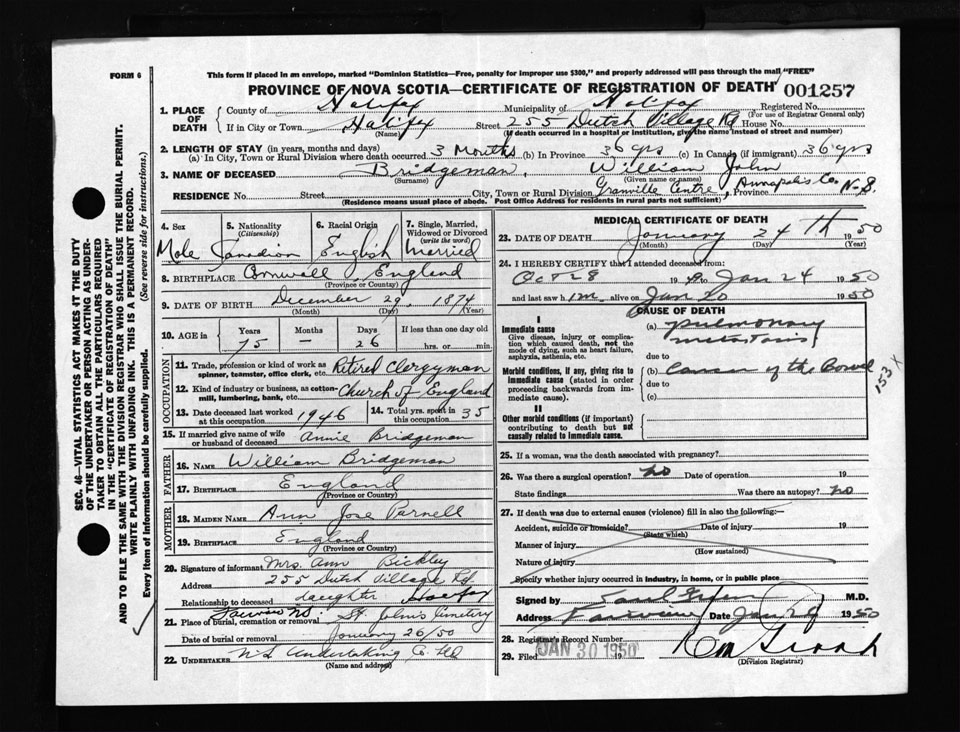 FORM 6
This form if placed in an envelope, marked "Dominion Statistics—Free, penalty for improper use $300," and properly addressed will pass through the mail "FREE"
PROVINCE OF NOVA SCOTIA—CERTIFICATE OF REGISTRATION OF DEATH 001257
1. PLACE OF DEATH
County of Halifax Municipality of Halifax Registered No.
(For use of Registrar General only)
If in City or Town Halifax Street 255 Dutch Village Rd House No.
(Name) (If death occurred in a hospital or institution, give the name instead of street and number)
2. LENGTH OF STAY (in years, months and days)
(a) In City, Town or Rural Division where death occurred 3 Months (b) In Province 36 yrs (c) In Canada (if immigrant) 36 yrs
3. NAME OF DECEASED Bridgeman, William John
(Surname) (Given name or names)
RESIDENCE No. Street City, Town or Rural Division Granville Centre, Province Annapolis Co. N.S.
(Residence means usual place of abode. Post Office Address for residents in rural parts not sufficient)
4. Sex Male
5. Nationality (Citizenship) Canadian
6. Racial Origin English
7. Single, Married, Widowed or Divorced (write the word) Married
8. BIRTHPLACE Cornwall, England
(Province or Country)
9. DATE OF BIRTH December 29, 1874
(Month) (Day) (Year)
10. AGE in Years Months Days If less than one day old
75 — 26 hrs. or min.
OCCUPATION
11. Trade, profession or kind of work as spinner, teamster, office clerk, etc. Retired Clergyman
12. Kind of industry or business, as cotton-mill, lumbering, bank, etc. Church of England
13. Date deceased last worked at this occupation 1946
14. Total yrs. spent in this occupation 35
15. If married give name of wife or husband of deceased Annie Bridgeman
FATHER
16. NAME William Bridgeman
17. BIRTHPLACE England
(Province or Country)
MOTHER
18. MAIDEN NAME Ann Jose Parnell
19. BIRTHPLACE England
(Province or Country)
20. Signature of informant Mrs. Ann Bickley
Address 255 Dutch Village Rd
Relationship to deceased daughter Halifax
21. Place of burial, cremation or removal St. John's Cemetery
Date of burial or removal January 26/50
22. UNDERTAKER N.S. Undertaking Co. Ltd
(Name and address)
MEDICAL CERTIFICATE OF DEATH
23. DATE OF DEATH January 24th 1950
(Month) (Day) (Year)
24. I HEREBY CERTIFY that I attended deceased from:
Oct 28 19 to Jan 24 1950
and last saw him alive on Jan 20 1950
CAUSE OF DEATH
I
Immediate cause
Give disease, injury or complication which caused death, not the mode of dying, such as heart failure, asphyxia, asthenia, etc.
(a) Pulmonary metastasis
due to
Morbid conditions, if any, giving rise to immediate cause (stated in order proceeding backwards from immediate cause).
(b) Cancer of the Bowel
due to
(c)
153 X
II
Other morbid conditions (if important) contributing to death but not causally related to immediate cause.
25. If a woman, was the death associated with pregnancy?
26. Was there a surgical operation? No Date of operation 19
State findings Was there an autopsy? No
27. If death was due to external causes (violence) fill in also the following:—
Accident, suicide or homicide? Date of injury 19
(State which)
Manner of injury
(How sustained)
Nature of injury
Specify whether injury occurred in industry, in home, or in public place
Signed by M.D.
Address Fairview Date Jan 29 1950
28. Registrar's Record Number
29. Filed JAN 30 1950 19
(Division Registrar)
SEC. 46—VITAL STATISTICS ACT MAKES IT THE DUTY
OF THE UNDERTAKER OR PERSON ACTING AS UNDER-
TAKER TO OBTAIN ALL THE PARTICULARS REQUIRED
IN THE "CERTIFICATE OF REGISTRATION OF DEATH"
AND TO FILE THE SAME WITH THE DIVISION REGISTRAR WHO SHALL ISSUE THE BURIAL PERMIT.
WRITE PLAINLY WITH UNFADING INK. THIS IS A PERMANENT RECORD.
Every item of Information should be carefully supplied. (See reverse side for instructions.)